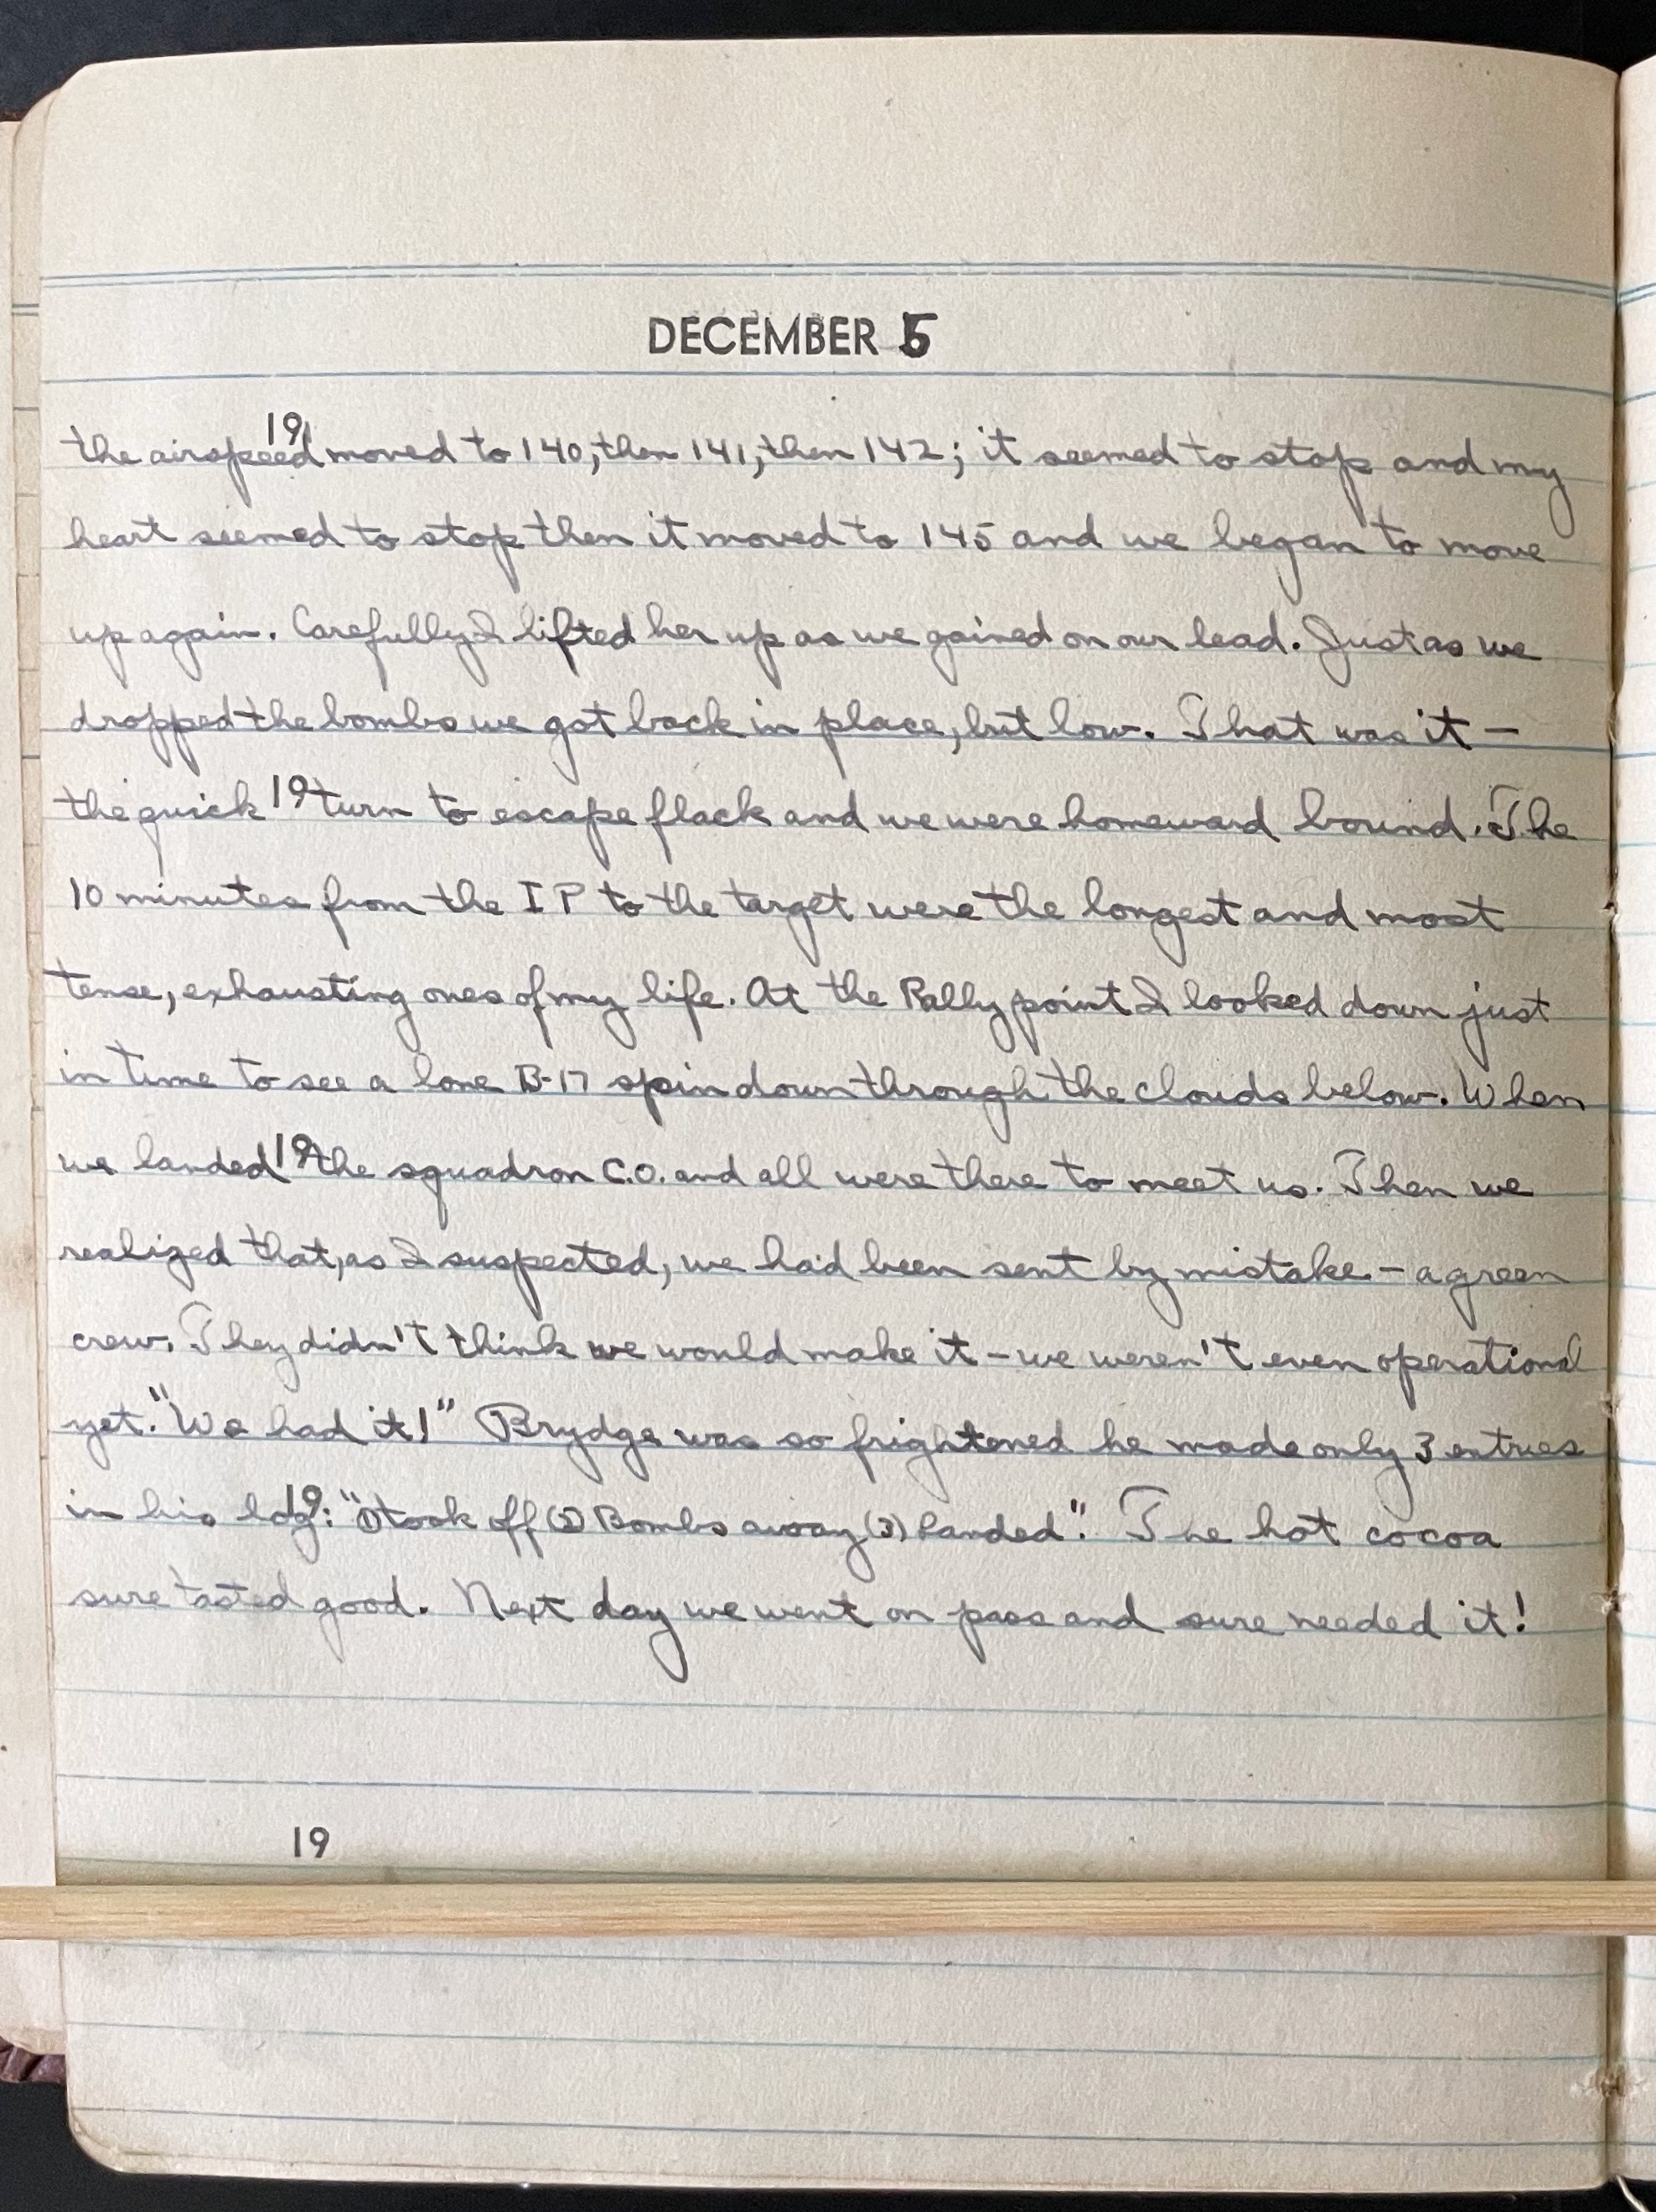 DECEMBER 5
19
the airspeed moved to 140, then 141, then 142; it seemed to stop and my
heart seemed to stop then it moved to 145 and we began to move
up again. Carefully I lifted her up as we gained on our lead. Just as we
dropped the bombs we got back in place, but low. That was it —
the quick 19 turn to escape flack and we were homeward bound. The
10 minutes from the IP to the target were the longest and most
tense, exhausting ones of my life. At the Rally point I looked down just
in time to see a lone B-17 spin down through the clouds below. When
we landed 19 the squadron C.O. and all were there to meet us. Then we
realized that, as I suspected, we had been sent by mistake - a green
crew. They didn't think we would make it - we weren't even operational
yet. "We had it!" Brydge was so frightened he made only 3 entries
in his log: 19 "(1) took off (2) Bombs away (3) landed". The hot cocoa
sure tasted good. Next day we went on pass and sure needed it!
19